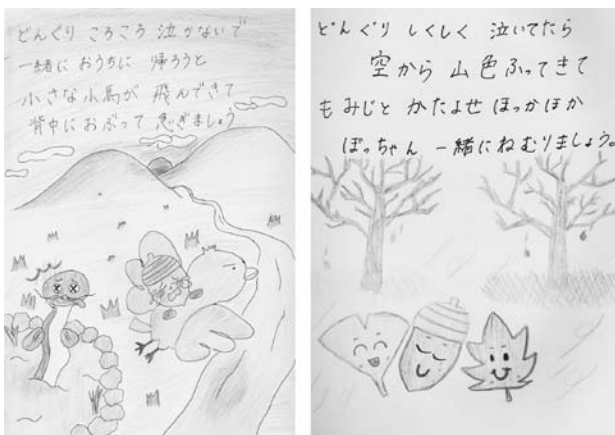 どんぐり ころころ 泣かないで
一緒に おうちに 帰ろうと
小さな小鳥が 飛んできて
背中におぶって 急ぎましょう
どんぐり しくしく 泣いてたら
空から 山色ふってきて
もみじと かたよせ ほっかほか
ぼっちゃん 一緒にねむりましょう。